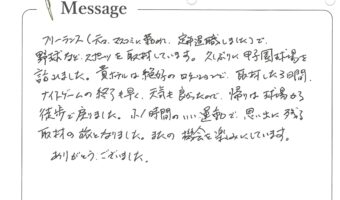 Message
フリーランス(元々、マスコミに勤め、定年退職しました)で、
野球など、スポーツを取材しています。久しぶりに甲子園球場を
訪れました。貴ホテルは絶好のロケーションで、取材した3日間、
ナイトゲームの終了も早く、天気も良かったので、帰りは球場から
徒歩で戻りました。小1時間のいい運動で、思い出に残る
取材の旅となりました。またの機会を楽しみにしています。
ありがとうございました。